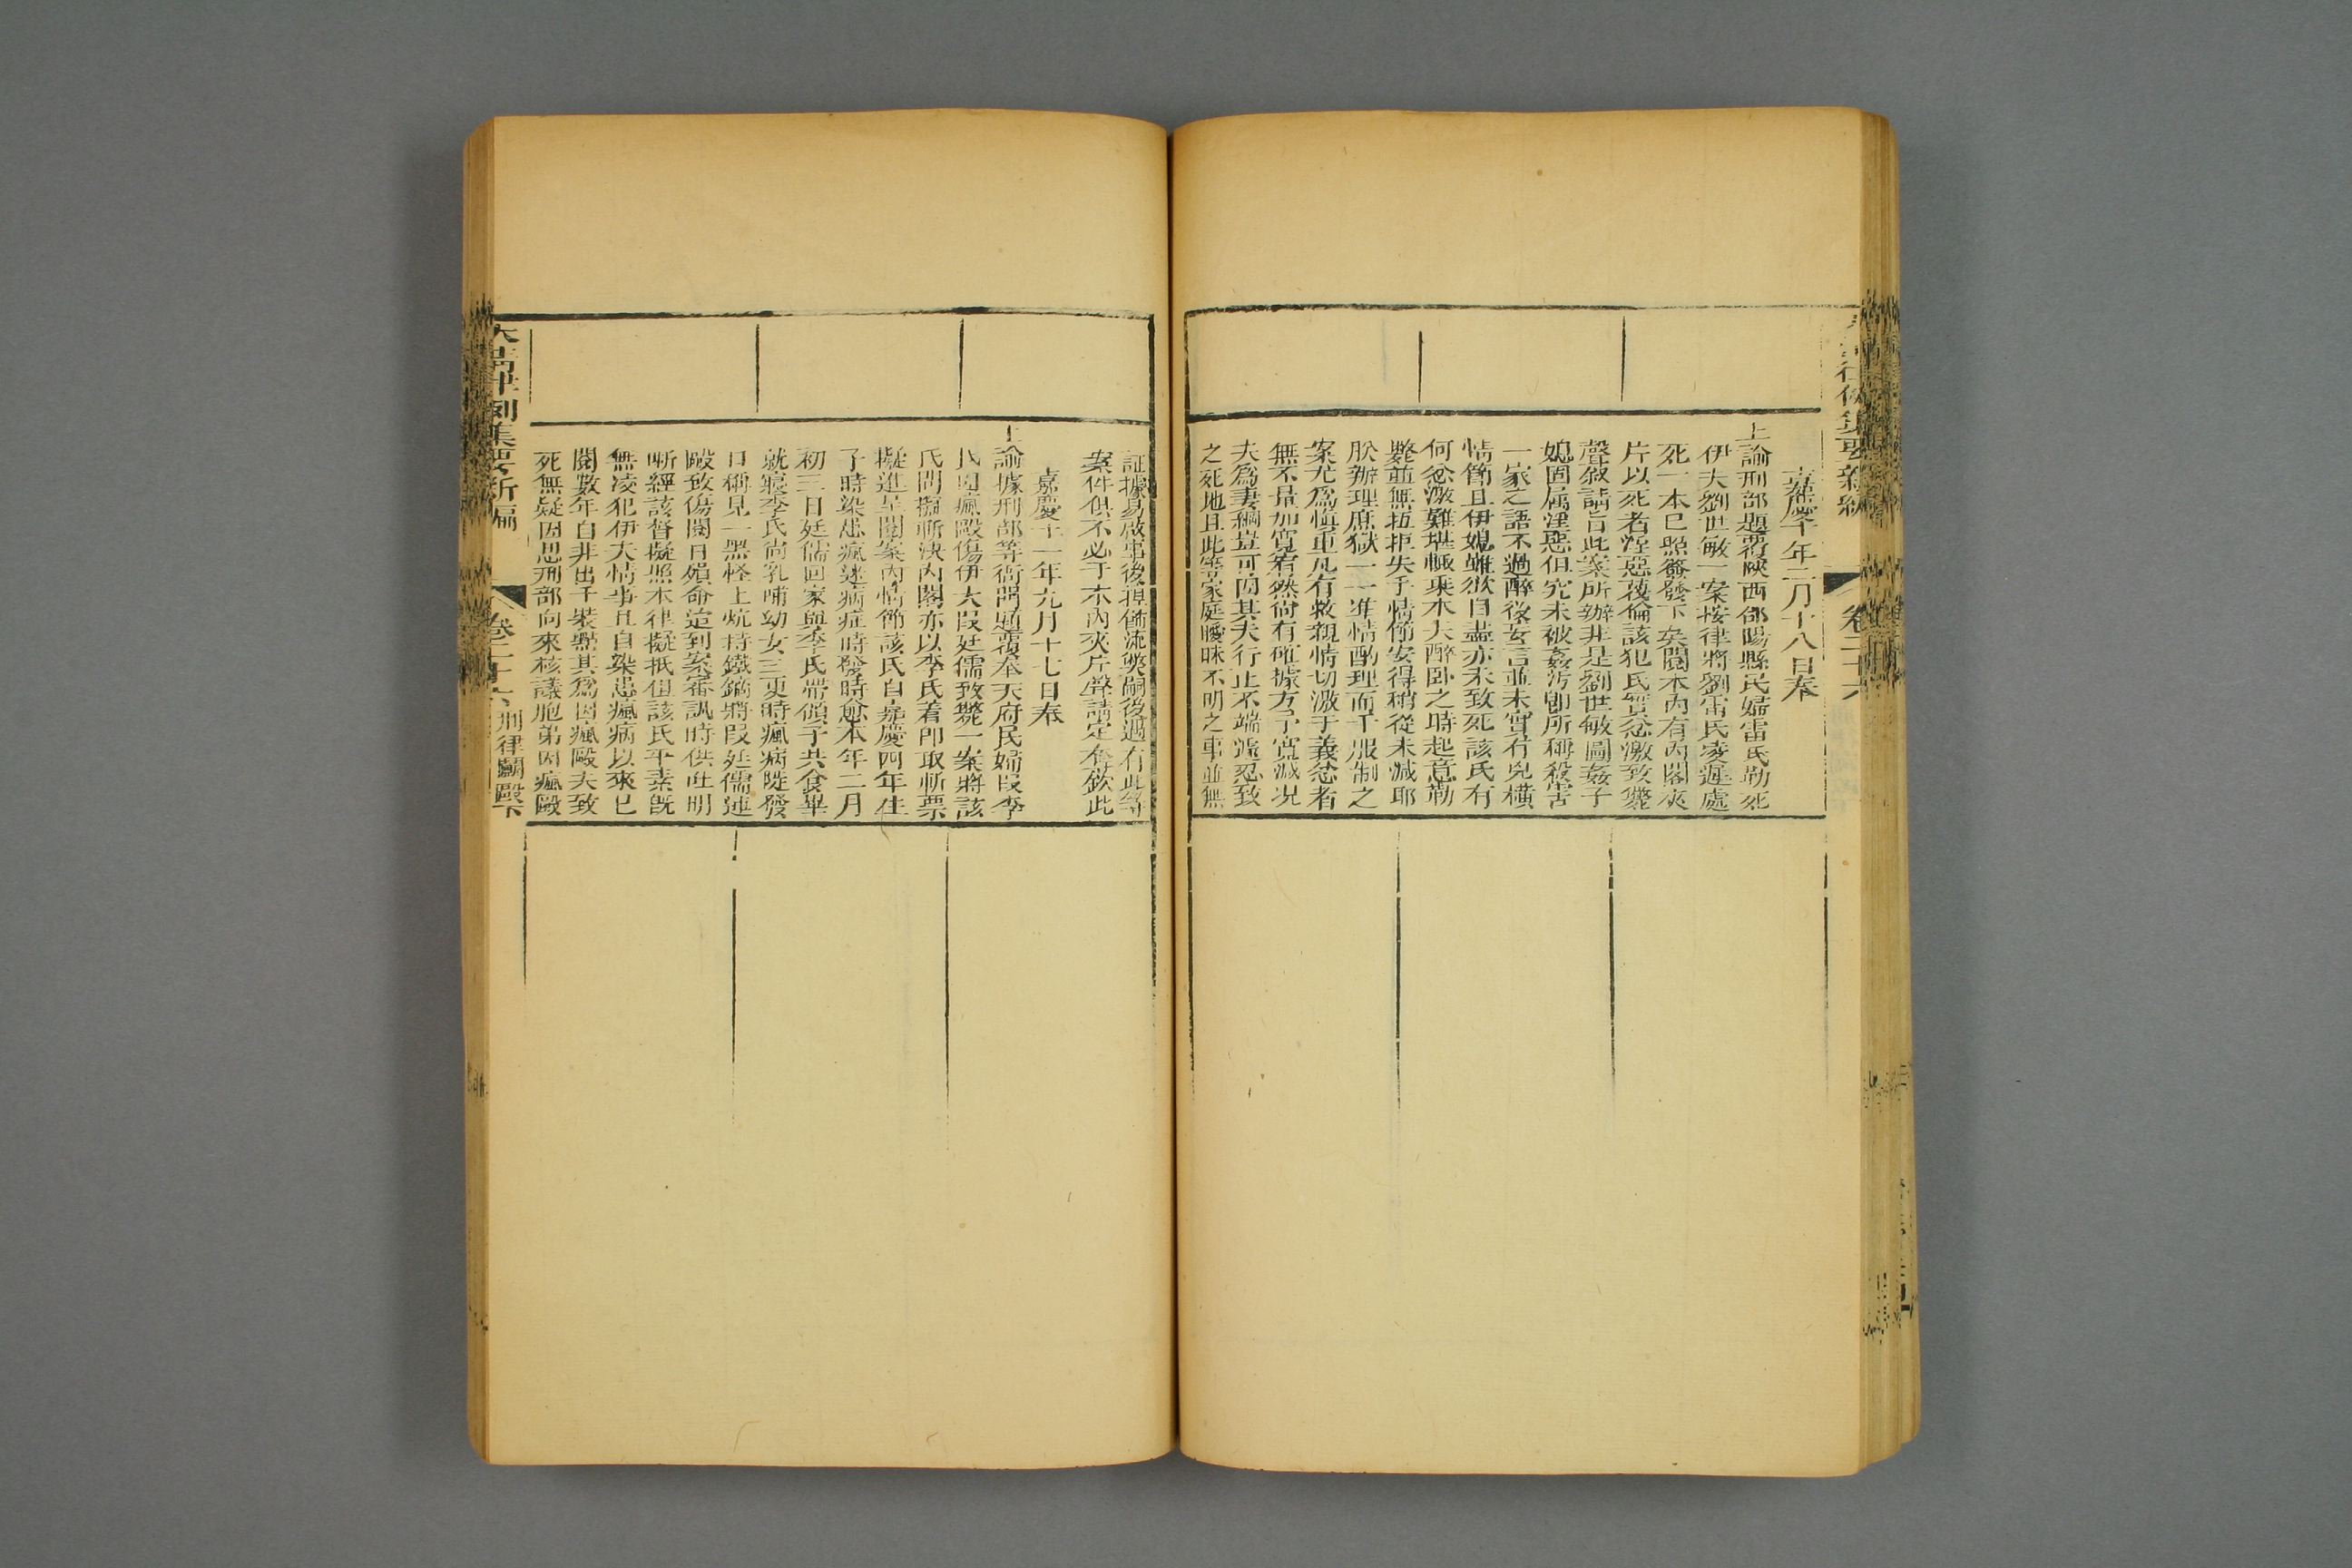 卷二十六
嘉慶十年二月十八日奉
上諭刑部題覆陝西郃陽縣民婦雷氏勒死
伊夫劉世敏一案按律將劉雷氏凌遲處
死一本已照簽發下矣閱本內有內閣夾
片以死者淫惡蔑倫該犯氏實忿激致斃
聲敘請旨此案所辦非是劉世敏圖姦子
媳固屬淫惡但究未被姦污即所稱殺害
一家之語不過醉後妄言並未實有兇橫
情節且伊媳雖欲自盡亦未致死該氏有
何忿激難堪輒乘本夫醉臥之時起意勒
斃並無抵拒失手情節安得稍從末減耶
朕辦理庶獄一一準情酌理而于服制之
案尤為慎重凡有救親情切激于義忿者
無不量加寬宥然尚有確據方予寬減况
夫為妻綱豈可因其夫行止不端遽忍致
之死地且此等家庭曖昧不明之事並無
証據易啟事後捏飾流弊嗣後遇有此等
案件俱不必于本內夾片聲請定奪欽此
嘉慶十一年九月十七日奉
上諭據刑部等衙門題覆奉天府民婦段李
氏因瘋毆傷伊夫段廷儒致斃一案將該
氏問擬斬決內閣亦以李氏着即取斬票
擬進呈閱案內情節該氏自嘉慶四年生
子時染患瘋迷病症時發時愈本年二月
初三日廷儒回家與李氏帶領子共食畢
就寢李氏尚乳哺幼女三更時瘋病陡發
口稱見一黑怪上炕持鐵鍋將段廷儒連
毆致傷閱日殞命迨到案審訊時供吐明
晰經該督擬照本律擬抵但該氏平素既
無凌犯伊夫情事且自染患瘋病以來已
閱數年自非出于裝點其為因瘋毆夫致
死無疑因思刑部向來核議胞弟因瘋毆
大清律例集要新編
卷二十六 刑律鬬毆下